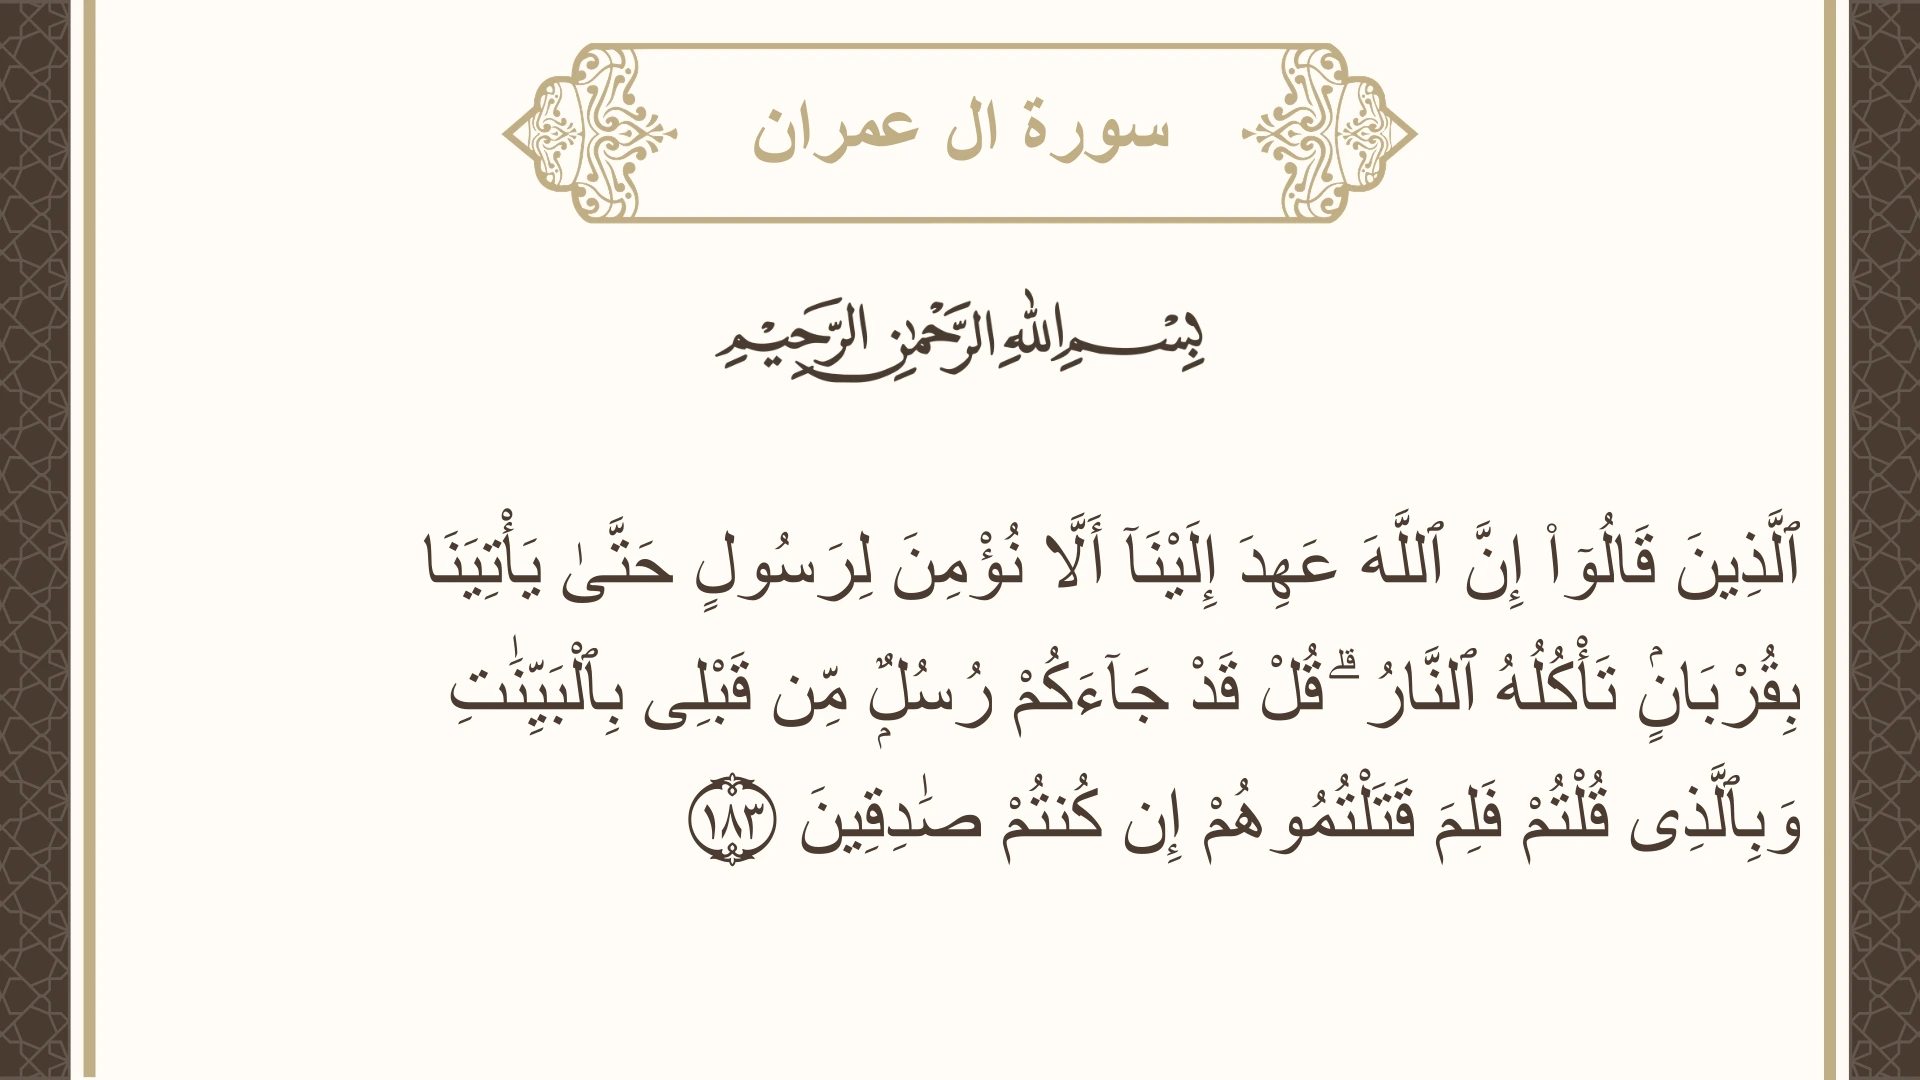 سورة ال عمران
بِسْمِ اللهِ الرَّحْمٰنِ الرَّحِيْمِ
ٱلَّذِينَ قَالُوٓا۟ إِنَّ ٱللَّهَ عَهِدَ إِلَيْنَآ أَلَّا نُؤْمِنَ لِرَسُولٍ حَتَّىٰ يَأْتِيَنَا
بِقُرْبَانٍۢ تَأْكُلُهُ ٱلنَّارُ ۗ قُلْ قَدْ جَآءَكُمْ رُسُلٌۭ مِّن قَبْلِى بِٱلْبَيِّنَٰتِ
وَبِٱلَّذِى قُلْتُمْ فَلِمَ قَتَلْتُمُوهُمْ إِن كُنتُمْ صَٰدِقِينَ ١٨٣